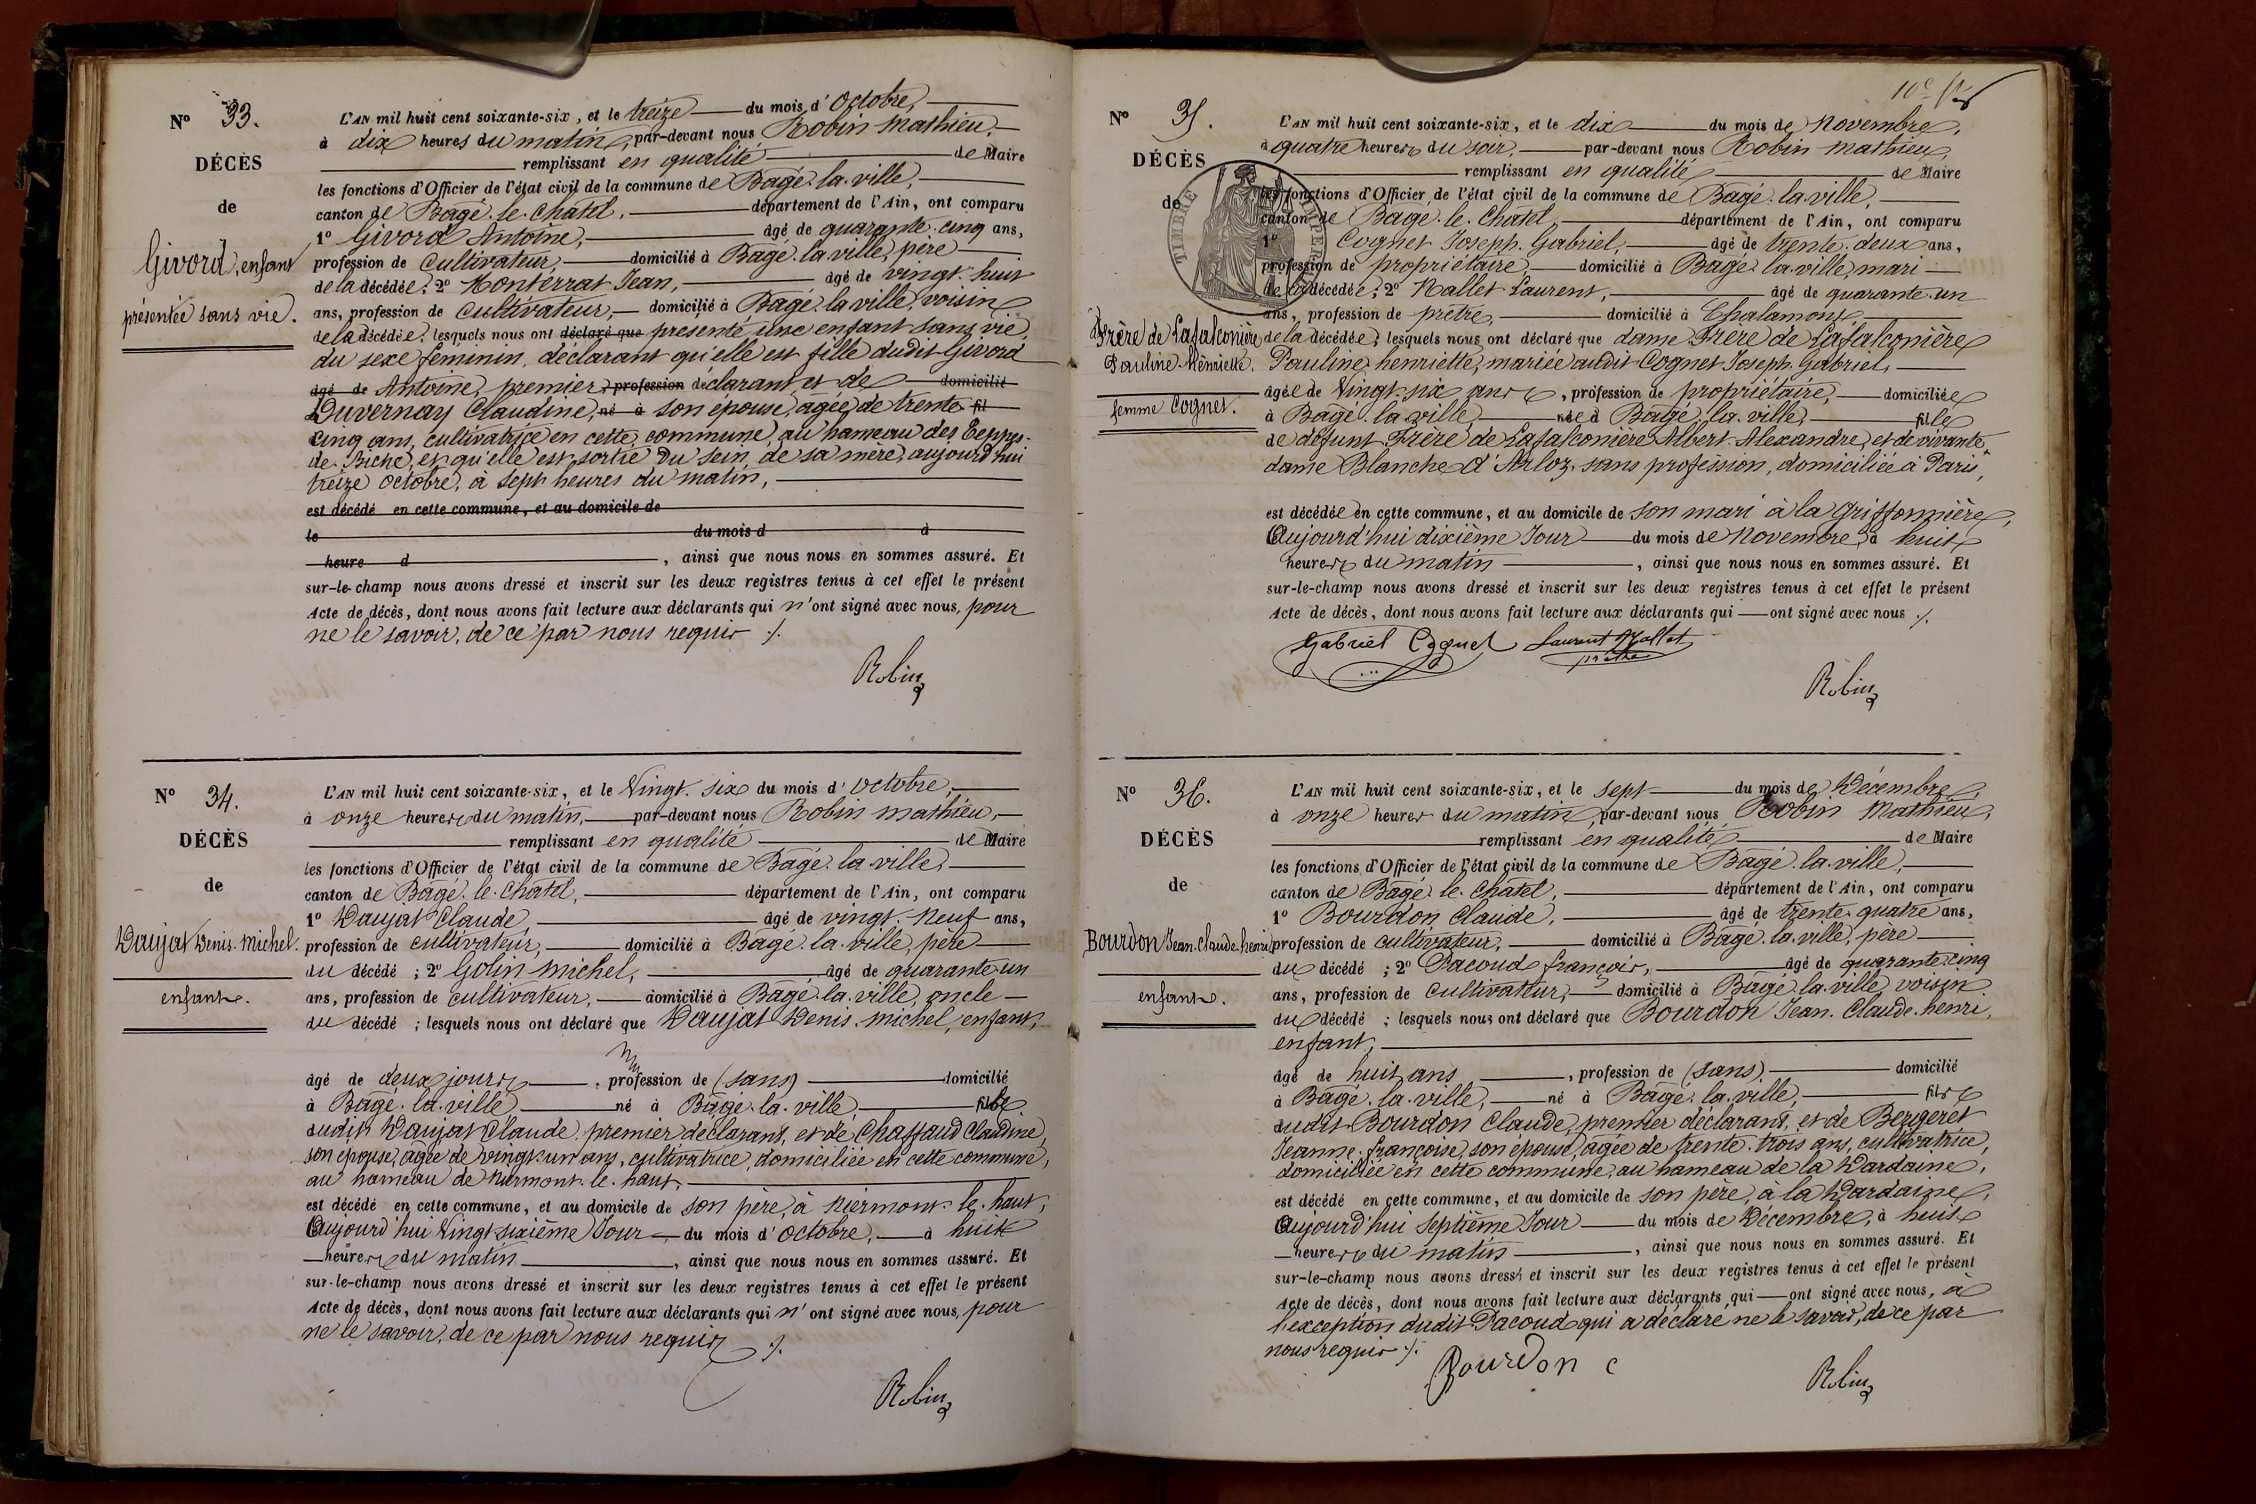 N° 33.
DÉCÈS
de
Givord, enfant
présentée sans vie.
L'AN mil huit cent soixante-six, et le treize du mois d'Octobre,
à dix heures du matin, par-devant nous Robin Mathieu,
remplissant en qualité de Maire
les fonctions d'Officier de l'état civil de la commune de Bâgé-la-ville,
canton de Bâgé-le-Châtel, département de l'Ain, ont comparu
1° Givord Antoine, âgé de quarante-cinq ans,
profession de cultivateur, domicilié à Bâgé-la-ville, père
de la décédée; 2° Monterrat Jean, âgé de vingt-huit
ans, profession de cultivateur, domicilié à Bâgé-la-ville, voisin
de la décédée, lesquels nous ont déclaré que présenté une enfant sans vie,
du sexe féminin, déclarant qu'elle est fille dudit Givord
âgé de Antoine, premier, profession déclarant et de domicilié
Duvernay Claudine, né à son épouse, âgée de trente fil
cinq ans, cultivatrice en cette commune, au hameau des Teppes-
de-Biche, et qu'elle est sortie du sein de sa mère, aujourd'hui
treize octobre, à sept heures du matin,
est décédé en cette commune, et au domicile de
le du mois d à
heure d , ainsi que nous nous en sommes assuré. Et
sur-le-champ nous avons dressé et inscrit sur les deux registres tenus à cet effet le présent
Acte de décès, dont nous avons fait lecture aux déclarants qui n'ont signé avec nous, pour
ne le savoir, de ce par nous requis ./.
Robin
N° 34.
DÉCÈS
de
Daujat Denis-Michel.
enfant.
L'AN mil huit cent soixante-six, et le vingt-six du mois d'octobre,
à onze heures du matin, par-devant nous Robin Mathieu,
remplissant en qualité de Maire
les fonctions d'Officier de l'état civil de la commune de Bâgé-la-ville,
canton de Bâgé-le-Châtel, département de l'Ain, ont comparu
1° Daujat Claude, âgé de vingt-neuf ans,
profession de cultivateur, domicilié à Bâgé-la-ville, père
du décédé ; 2° Golin Michel, âgé de quarante-un
ans, profession de cultivateur, domicilié à Bâgé-la-ville, oncle
du décédé ; lesquels nous ont déclaré que Daujat Denis-Michel, enfant,
âgé de deux jours, profession de (sans) domicilié
à Bâgé-la-ville, né à Bâgé-la-ville, fils
dudit Daujat Claude, premier déclarant, et de Chaffaud Claudine,
son épouse, âgée de vingt-un ans, cultivatrice, domiciliée en cette commune,
au hameau de Niermont-le-haut,
est décédé en cette commune, et au domicile de son père, à Niermont-le-haut,
Aujourd'hui vingt-sixième Jour du mois d'octobre, à huit
heures du matin, ainsi que nous nous en sommes assuré. Et
sur-le-champ nous avons dressé et inscrit sur les deux registres tenus à cet effet le présent
Acte de décès, dont nous avons fait lecture aux déclarants qui n'ont signé avec nous, pour
ne le savoir, de ce par nous requis ./.
Robin
N° 35.
DÉCÈS
de
TIMBRE IMPERIAL
Frère de Lafalconière
Pauline-Henriette.
femme Cognet.
L'AN mil huit cent soixante-six, et le dix du mois de Novembre,
à quatre heures du soir, par-devant nous Robin Mathieu,
remplissant en qualité de Maire
les fonctions d'Officier de l'état civil de la commune de Bâgé-la-ville,
canton de Bâgé-le-Châtel, département de l'Ain, ont comparu
1° Cognet Joseph-Gabriel, âgé de trente-deux ans,
profession de propriétaire, domicilié à Bâgé-la-ville, mari
de la décédée; 2° Mallet Laurent, âgé de quarante-un
ans, profession de prêtre, domicilié à Chalamont,
de la décédée; lesquels nous ont déclaré que dame Frère de Lafalconière
Pauline-henriette, mariée audit Cognet Joseph-Gabriel,
âgée de vingt-six ans, profession de propriétaire, domiciliée
à Bâgé-la-ville, née à Bâgé-la-ville, fille
de défunt Frère de Lafalconière Albert-Alexandre, et de vivante
dame Blanche d'Arloz, sans profession, domiciliée à Paris,
est décédée en cette commune, et au domicile de son mari à la Griffonnière,
Aujourd'hui dixième Jour du mois de Novembre, à huit
heures du matin, ainsi que nous nous en sommes assuré. Et
sur-le-champ nous avons dressé et inscrit sur les deux registres tenus à cet effet le présent
Acte de décès, dont nous avons fait lecture aux déclarants qui ont signé avec nous ./.
Gabriel Cognet Laurent Mallet
prêtre
Robin
N° 36.
DÉCÈS
de
Bourdon Jean-Claude-henri
enfant.
L'AN mil huit cent soixante-six, et le sept du mois de Décembre,
à onze heures du matin, par-devant nous Robin Mathieu,
remplissant en qualité de Maire
les fonctions d'Officier de l'état civil de la commune de Bâgé-la-ville,
canton de Bâgé-le-Châtel, département de l'Ain, ont comparu
1° Bourdon Claude, âgé de trente-quatre ans,
profession de cultivateur, domicilié à Bâgé-la-ville, père
du décédé ; 2° Pacoud françois, âgé de quarante-cinq
ans, profession de cultivateur, domicilié à Bâgé-la-ville, voisin
du décédé ; lesquels nous ont déclaré que Bourdon Jean-Claude-henri,
enfant,
âgé de huit ans, profession de (sans) domicilié
à Bâgé-la-ville, né à Bâgé-la-ville, fils
dudit Bourdon Claude, premier déclarant, et de Bergeret
Jeanne-françoise, son épouse, âgée de trente-trois ans, cultivatrice,
domiciliée en cette commune, au hameau de la Dardaine,
est décédé en cette commune, et au domicile de son père, à la Dardaine,
Aujourd'hui septième Jour du mois de Décembre, à huit
heures du matin, ainsi que nous nous en sommes assuré. Et
sur-le-champ nous avons dressé et inscrit sur les deux registres tenus à cet effet le présent
Acte de décès, dont nous avons fait lecture aux déclarants qui ont signé avec nous, à
l'exception dudit Pacoud qui a déclaré ne le savoir, de ce par
nous requis ./.
Bourdon C
Robin